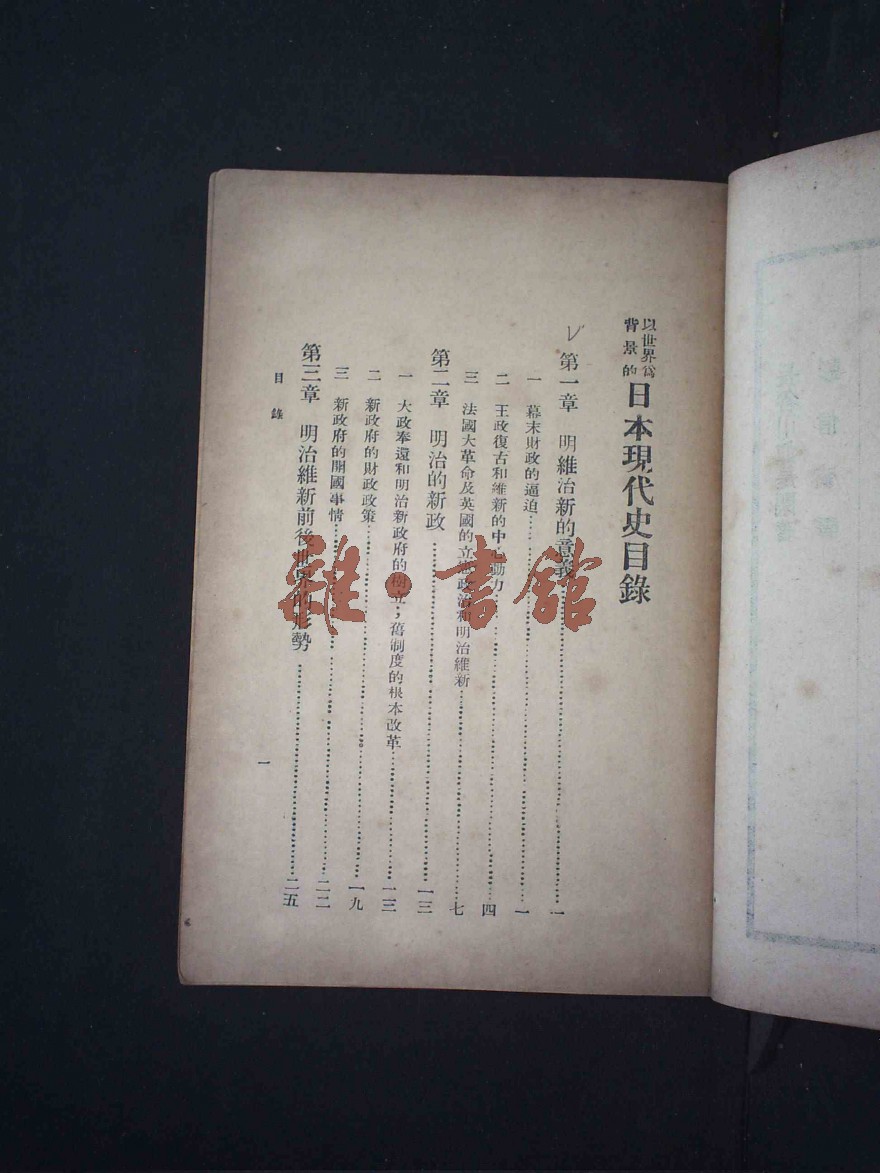 以世界爲
背景的
日本現代史目錄
第一章 明維治新的意義……一
一 幕末財政的逼迫……一
二 王政復古和維新的中心動力……四
三 法國大革命及英國的立憲政治和明治維新……七
第二章 明治的新政……一三
一 大政奉還和明治新政府的樹立；舊制度的根本改革……一三
二 新政府的財政政策……一九
三 新政府的開國事情……二二
第三章 明治維新前後世界的形勢……二五
目錄
一
雜·書館